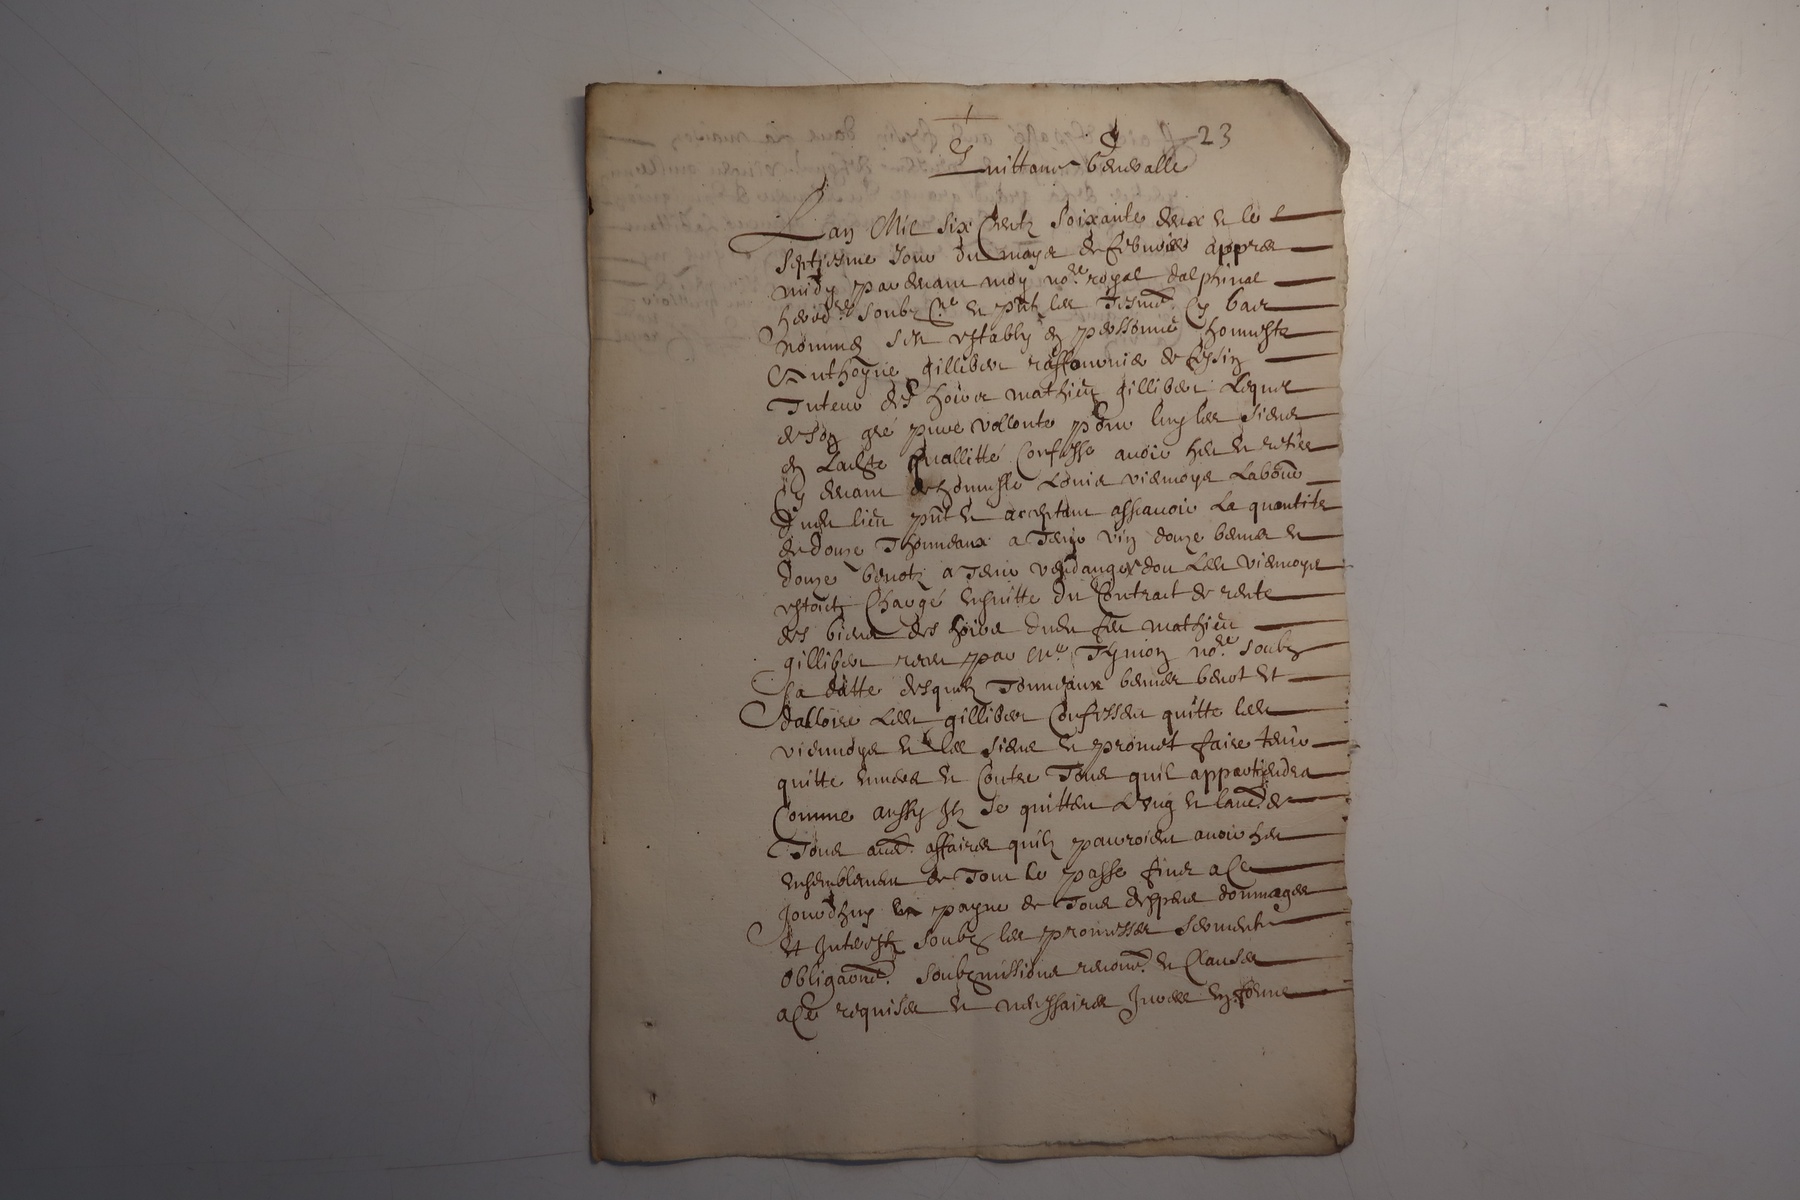 23
Quittance generalle
Lan Mil Six Centz Soixante deux et le
Septiesme Jour du moys de febvrier appres
midy par devant moy no.re royal dalphinal
hered.re soubz.ne et p.ntz les Tesmo. Cy bas
nommes sest estably en personne honneste
Anthoyne gilliber de Eyzin
Tuteur des hoirs mathieu gilliber Lequel
de son gre pure vollonte pour luy les siens
en Ladte quallitté Confesse avoir heu et retire
Cy devant de honneste Louis viennoys Labour
dudt lieu pnt et acceptant assavoir La quantite
de douze Thonneaux a Tenir vin douze bennes et
douze benotz a Tenir vendanges dont Ledt viennoys
estoict Chargé ensuitte du Contract de rente
des biens des hoirs dudt feu mathieu
gilliber receu par me no.re soubz
Sa datte desquelz Tonneaux bennes benot et
dalloire Ledt gilliber Confessent quitte ledt
viennoys et les siens et promet faire tenir
quitte envers et Contre Tous quil appartiendra
Comme aussy Ilz se quittent Lung et laue. de
Tous aue. affaires quilz pourroient avoir heu
ensemblement de Tout le passe Jusques a Ce
Jourdhuy et a payne de Tous despens dommages
et Interestz soubz les promesses serments
obligaons. soubzmissions renons. et Clauses
a Ce requises et necessaires en forme